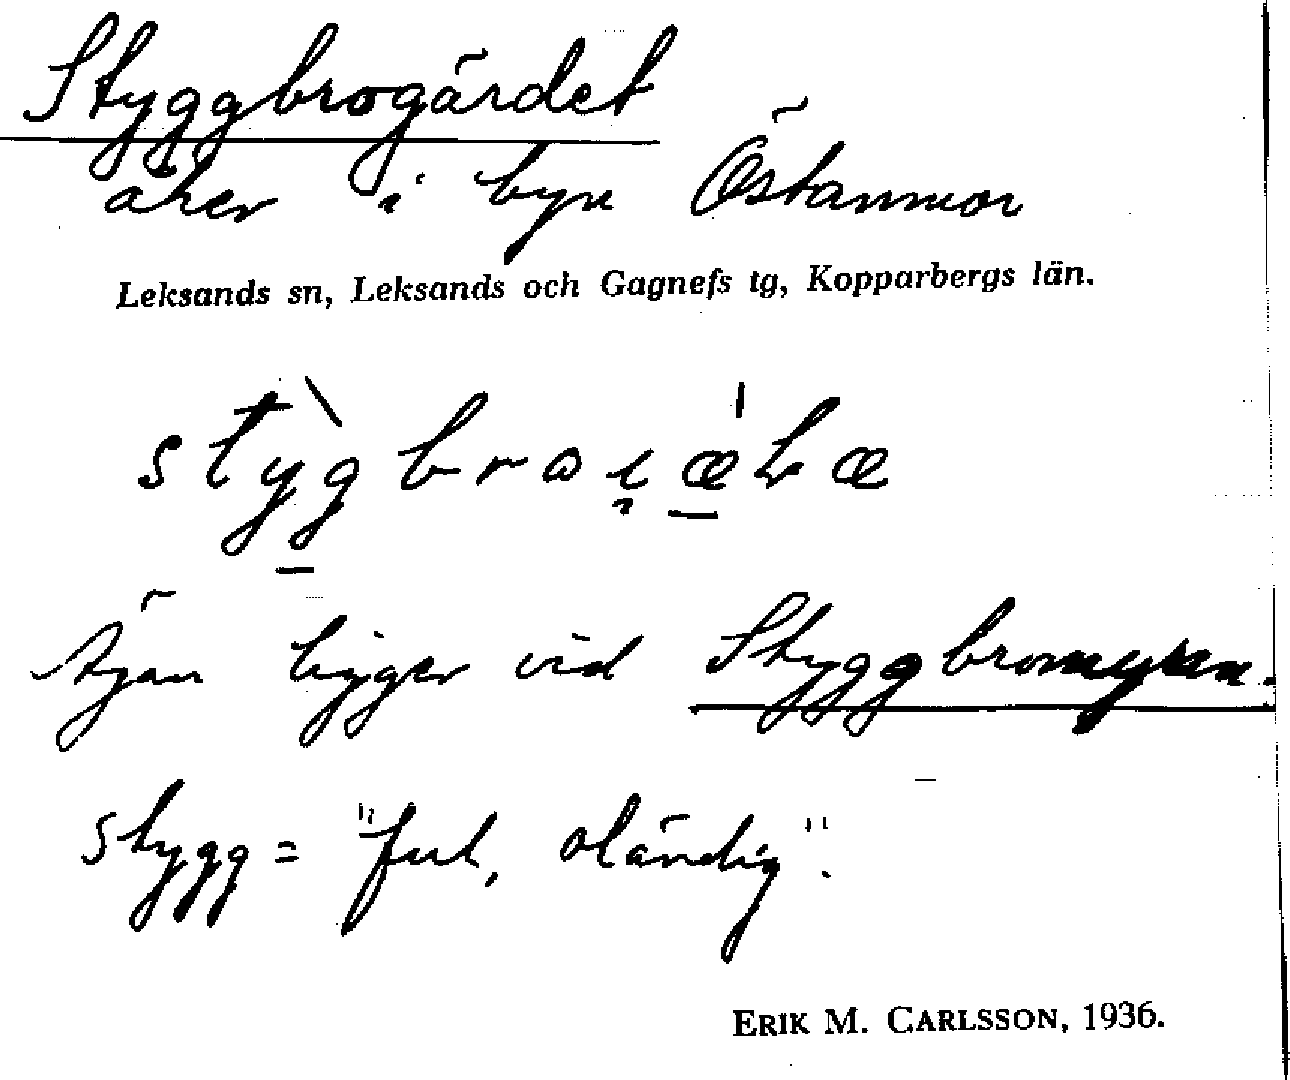 Styggbrogärdet
åker i byn Östanmor
Leksands sn, Leksands och Gagnefs tg, Kopparbergs län.
ligger vid Styggbromyren.
stygg = "ful, oländig".
ERIK M. CARLSSON, 1936.